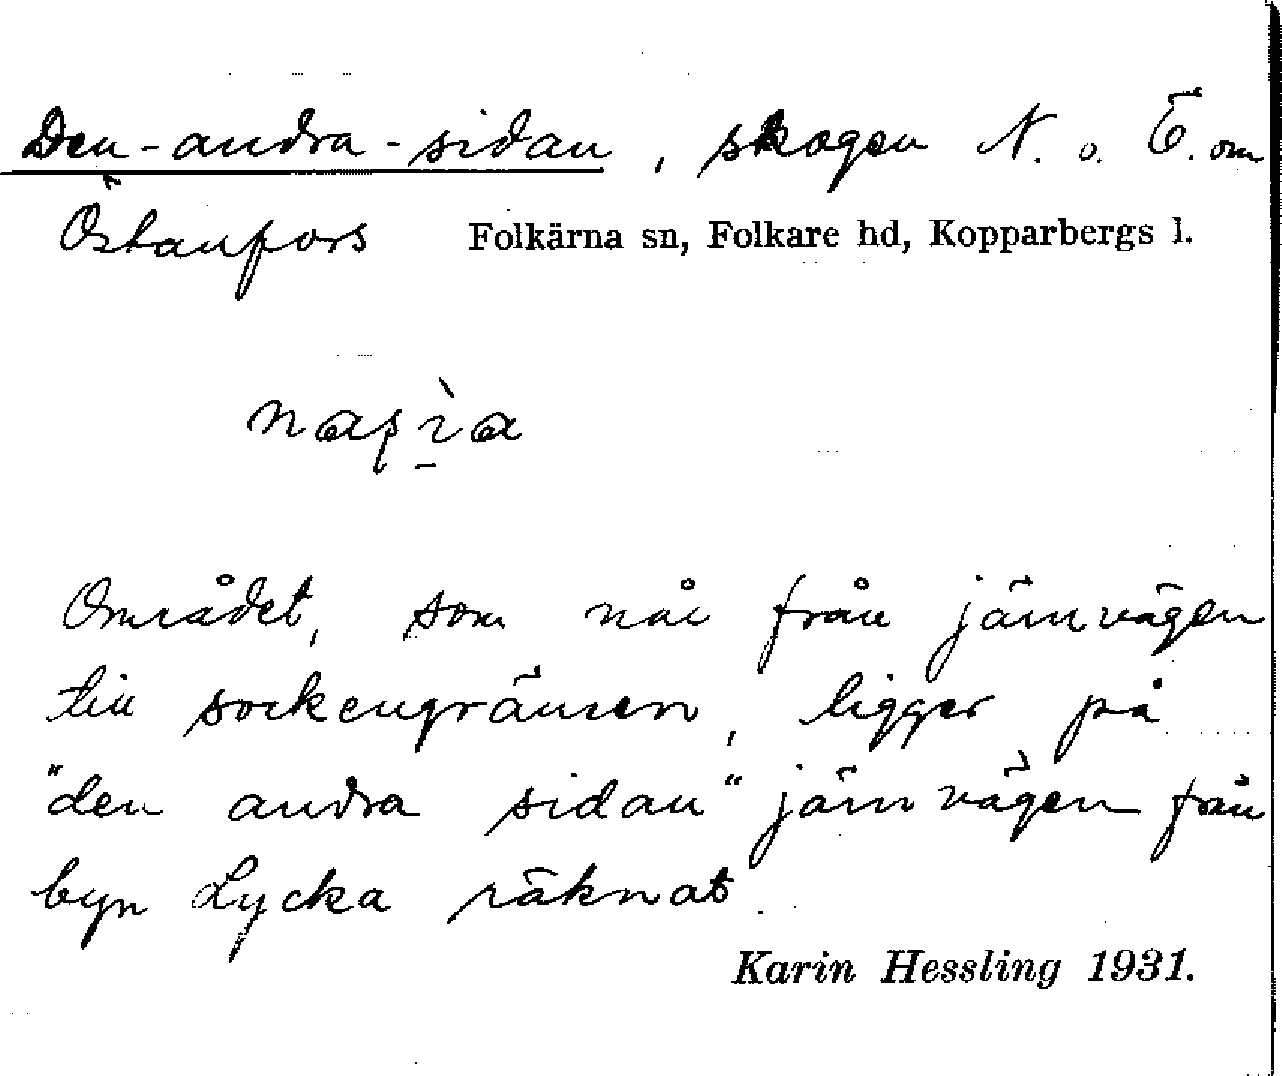 Den-andra-sidan, skogen N. o. Ö. om
Östanfors Folkärna sn, Folkare hd, Kopparbergs l.
Området, som når från järnvägen
till sockengränsen, ligger på
"den andra sidan" järnvägen från
byn Lycka räknat.
Karin Hessling 1931.